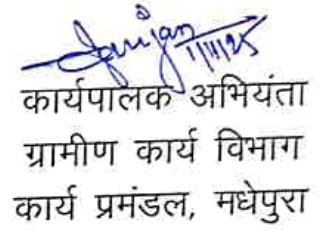 1/11/25
कार्यपालक अभियंता
ग्रामीण कार्य विभाग
कार्य प्रमंडल, मधेपुरा